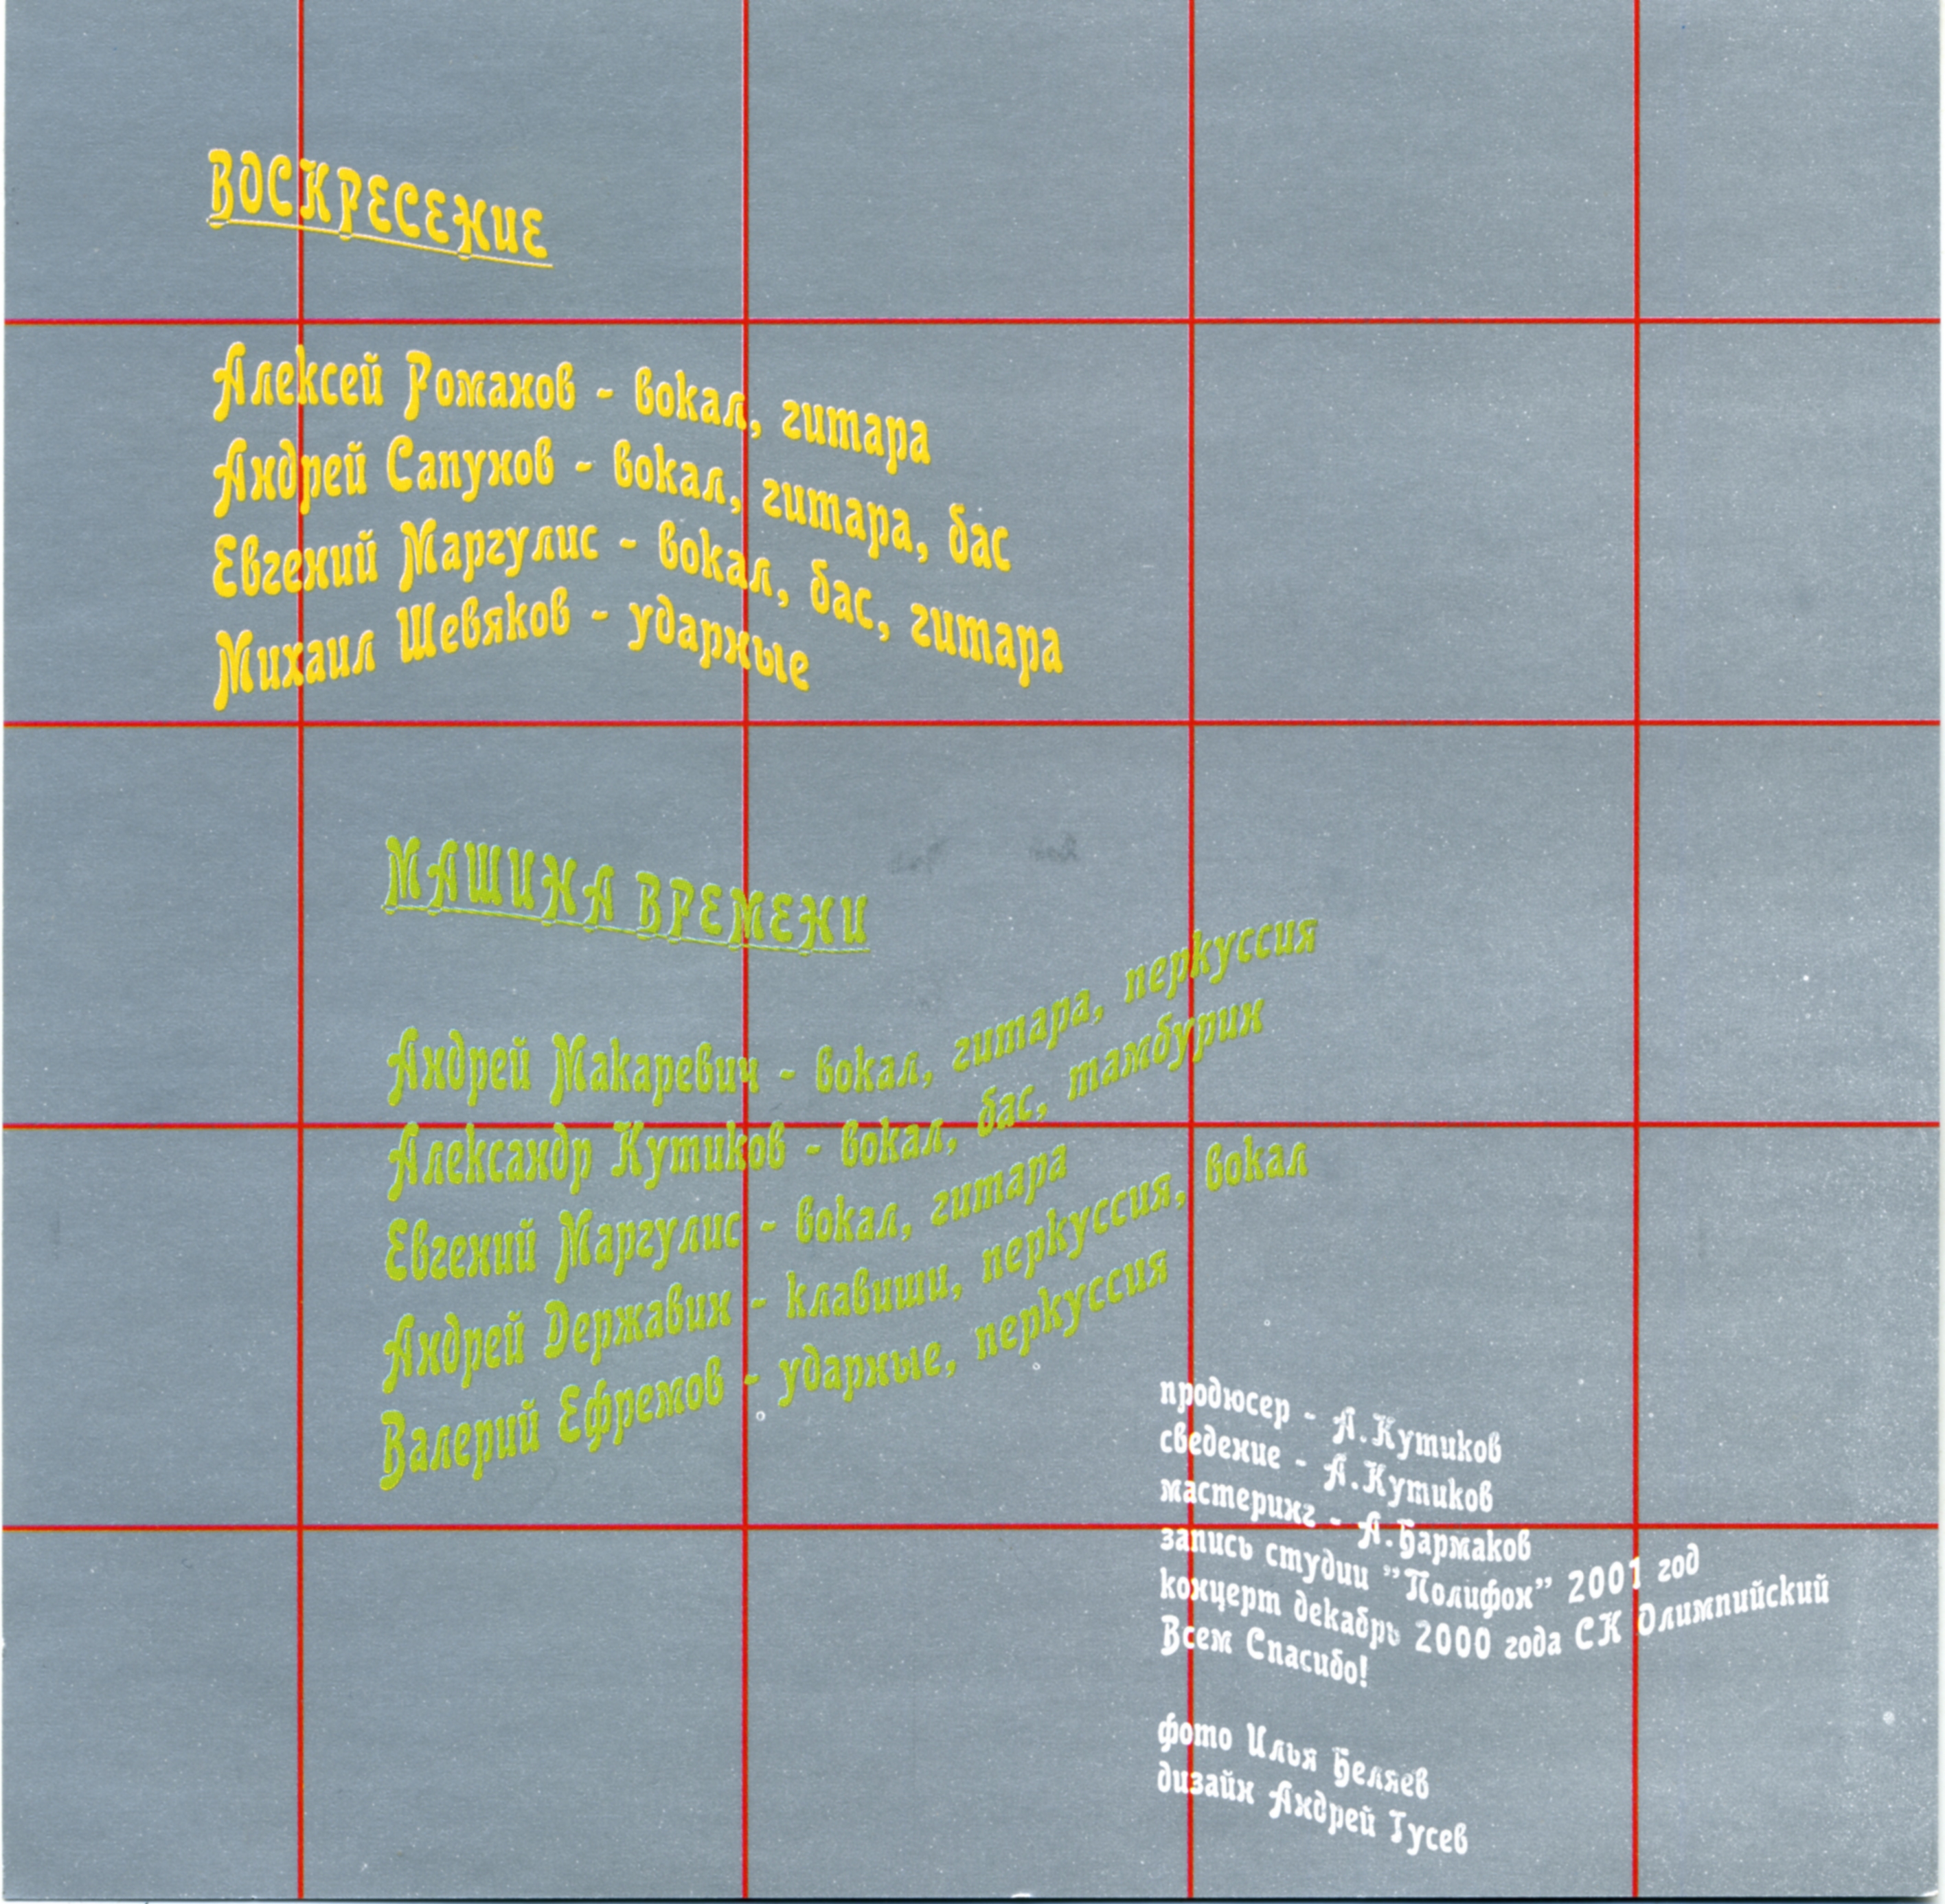 ВОСКРЕСЕНИЕ
Алексей Романов - вокал, гитара
Андрей Сапунов - вокал, гитара, бас
Евгений Маргулис - вокал, бас, гитара
Михаил Шевяков - ударные
МАШИНА ВРЕМЕНИ
Андрей Макаревич - вокал, гитара, перкуссия
Александр Кутиков - вокал, бас, тамбурин
Евгений Маргулис - вокал, гитара
Андрей Державин - клавиши, перкуссия, вокал
Валерий Ефремов - ударные, перкуссия
продюсер - А.Кутиков
сведение - А.Кутиков
мастеринг - А.Бармаков
запись студии "Полифон" 2001 год
концерт декабрь 2000 года СК Олимпийский
Всем Спасибо!
фото Илья Беляев
дизайн Андрей Гусев